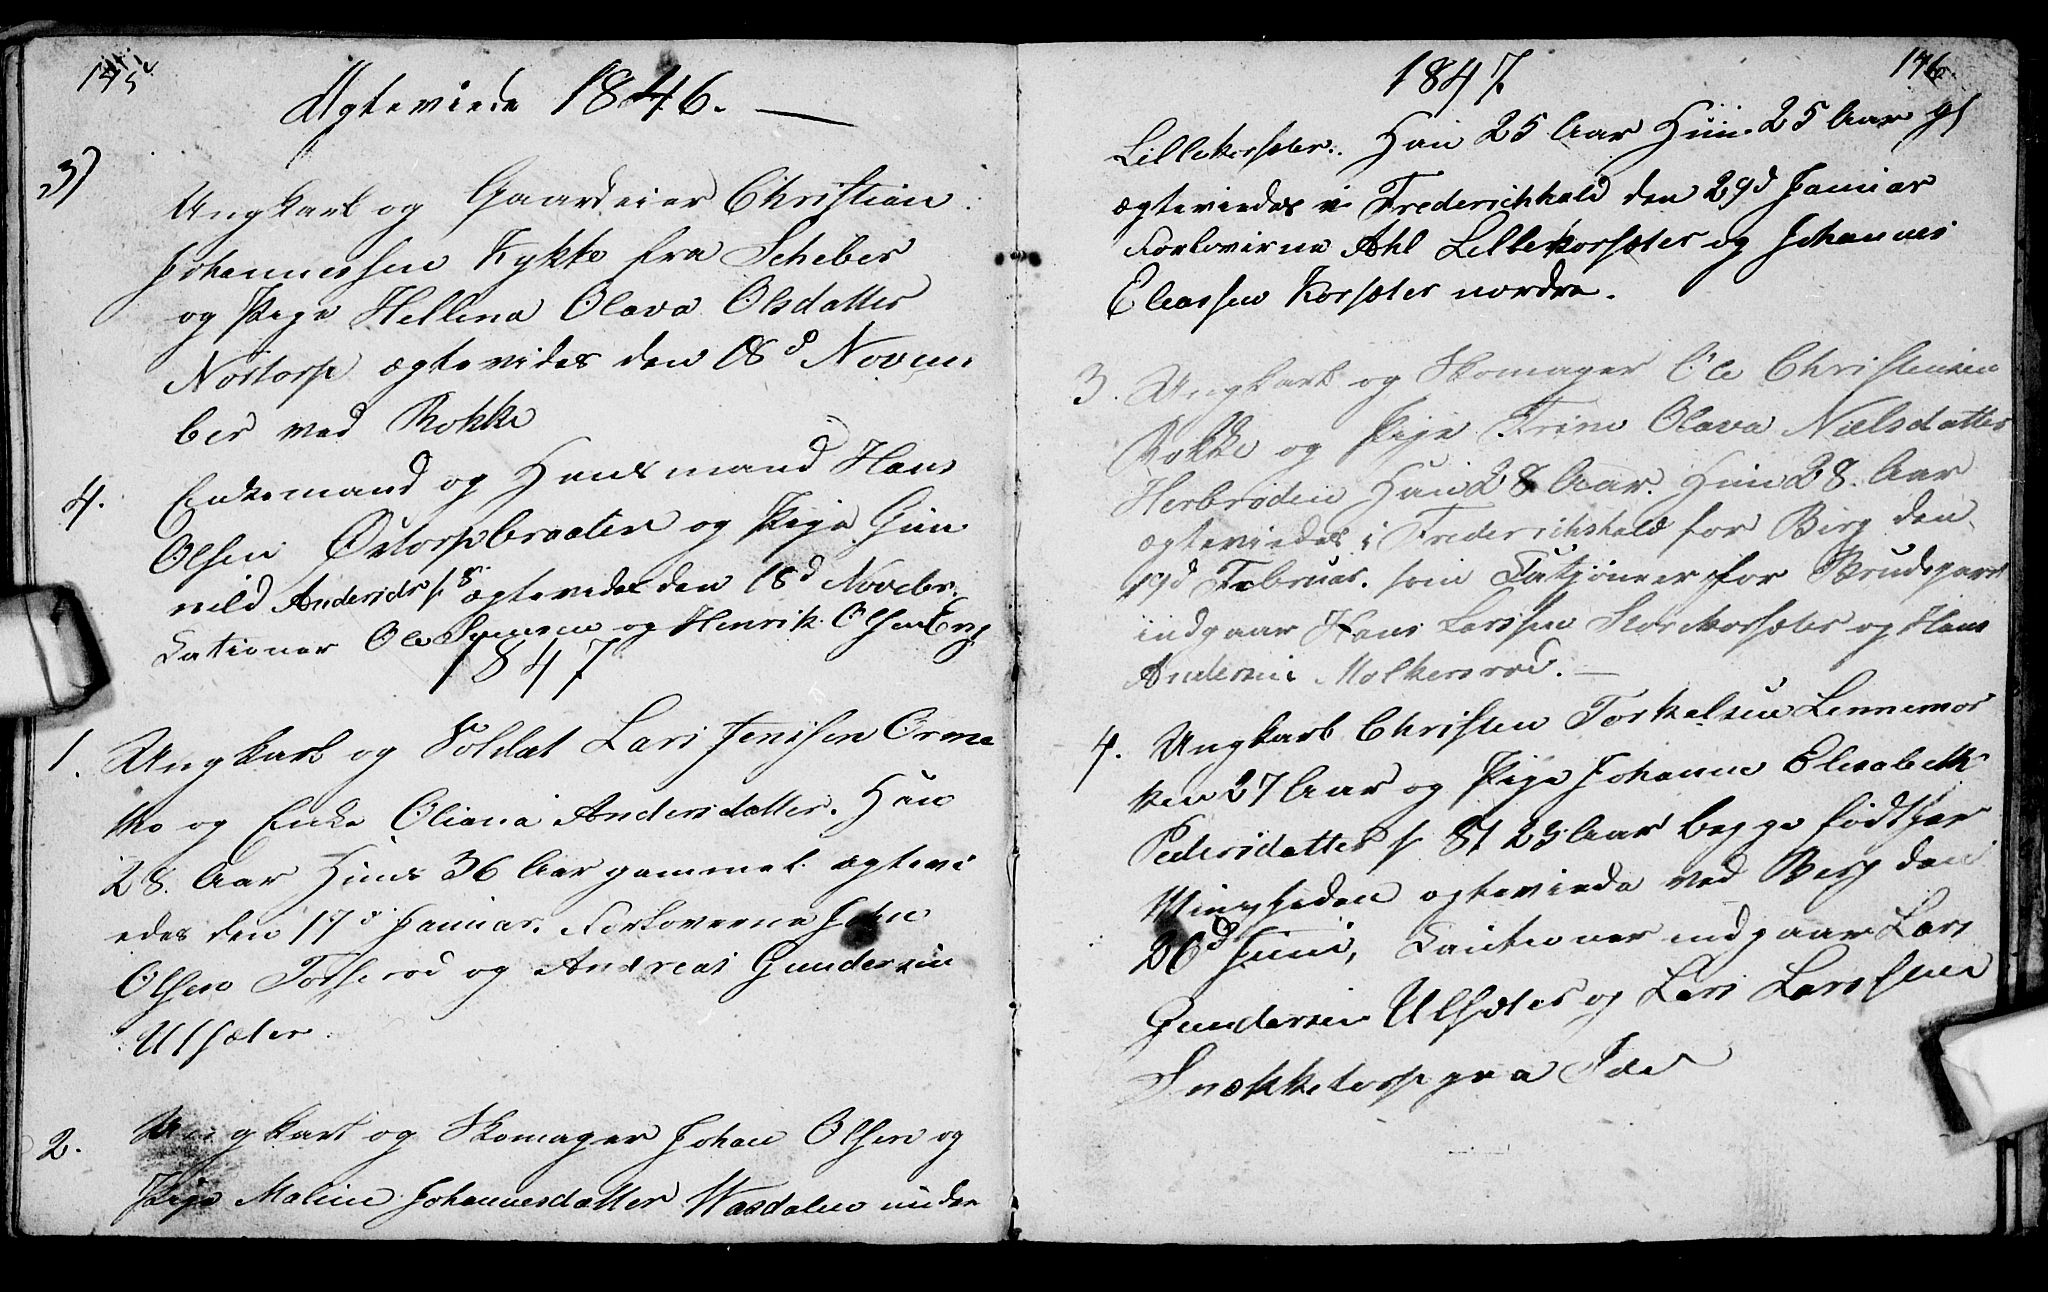 175
Ægteviede 1846. —
3)
Ungkarl og Gaardeier Christian
Johannessen Kykke fra Scheber
og Pige Hellena Olava Olsdatter
Nostorp ægtevides den 18d Novem
ber ved Rokke
4. Enkemand og Huusmand Hans
Olsen Østorpbraaten og Pige Gun
nild Andersds ægtevides den 18d Novebr.
Cationer Ole Svensen og Henrik Olsen Eng
1847
1. Ungkarl og Soldat Lars Jensen Orme
tho og Enke Oliana Andersdatter. Han
28. Aar Huns 36 Aar gammel. ægtevi
edes den 17d Januar. Forloverne John
Olsen Torperød og Andreas Gundersen
Ulsæter.
2. Ungkarl og Skomager Johan Olsen og
Pige Maline Johannesdatter Wasdalen under
1847.
176.
Lillekorsæter. Han 25 Aar Hun 25 Aar gl
ægteviedes i Frederichhald den 29d Januar
Forloverne Ahl Lillekorsæter og Johannes
Eleassen Korsæter nordre.
3. Ungkarl og Skomager Ole Christensen
Rokke og Pige Trine Olava Nielsdatter
Herbrøden Han 28 Aar. Hun 28. Aar
ægteviedes i Frederichshald for Berg den
19d Februar. som Cutjoner for Brudepar
indgaar Hans Larssen Storekorsæter og Hans
Andersen Molkersrød. —
4. Ungkarl Christen Torkelsen Lennemor
ken 27 Aar og Pige Johanne Elisabeth
Pedersdatter 23 Aar begge født
ægteviede ved Berg den
20d Juni, Cautioner indgaar Lars
Gundersen Ulsæter og Lars Larssen
Snækketorp fra Ide